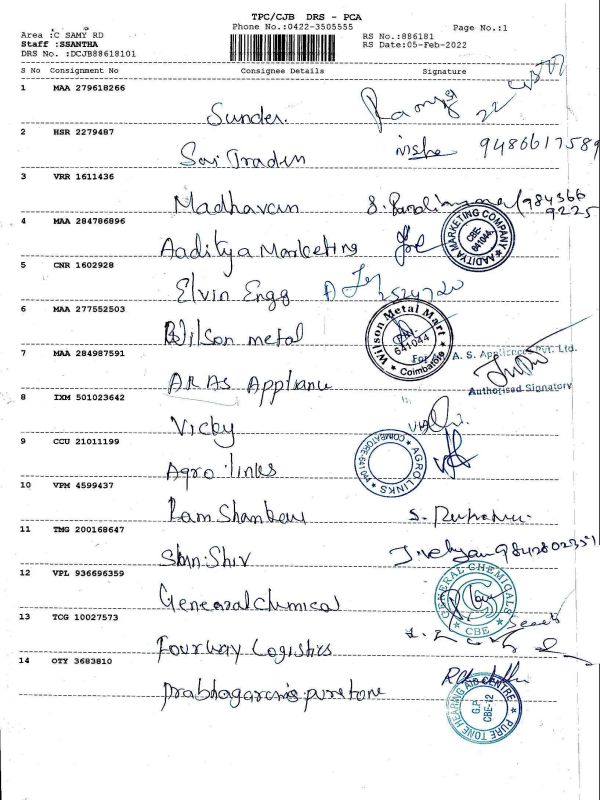 TPC/CJB DRS - PCA
Phone No.:0422-3505555
Page No.:1
Area :C SAMY RD
Staff :SSANTHA
DRS No. :DCJB88618101
RS No.:886181
RS Date:05-Feb-2022
S No Consignment No Consignee Details Signature
1 MAA 279618266
Sunder.
2 HSR 2279487
Sai Traders nisha 9486617589
3 VRR 1611436
Madhavan
4 MAA 284786896
Aaditya Marketing
AADITYA MARKETING COMPANY
CBE-641044.
5 CNR 1602928
Elvin Engg
6 MAA 277552503
Wilson metal
Wilson Metal Mart
641044
Coimbatore
7 MAA 284987591
For A. S. Appliances Pvt. Ltd.
ARAS Appliance
Authorised Signatory
8 IXM 501023642
Vicky
9 CCU 21011199
Agro links
AGRO LINKS
COIMBATORE-641 044
10 VPM 4599437
Ram Shankar
11 TMG 200168647
Shri Shiv 9842802351
12 VPL 936696359
General chemical
GENERAL CHEMICALS
CBE
13 TCG 10027573
Fourway Logistics
14 OTY 3683810
Prabhagaran's puretone
PURE TONE HEARING AID CENTRE
G.P.
CBE-12